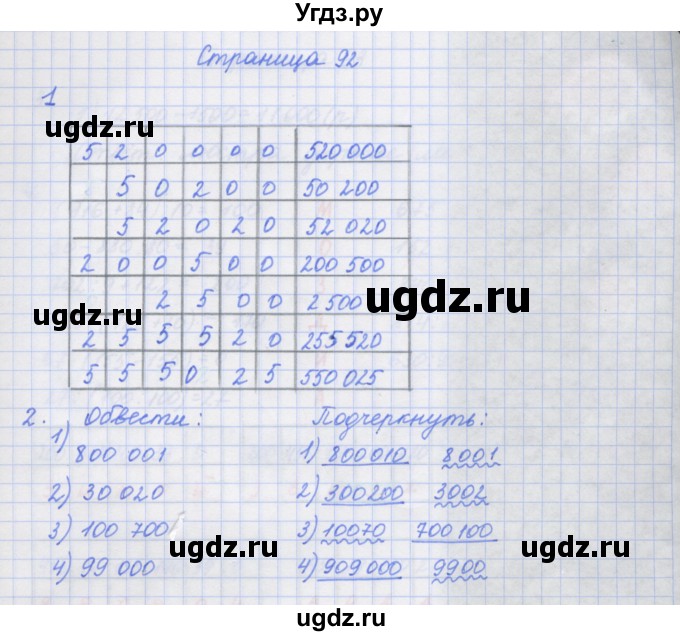 Угдз.ру
Страница 92
1
ugdz.ru
5 2 0 0 0 0 520 000
5 0 2 0 0 50 200
ugdz.ru
5 2 0 2 0 52 020
2 0 0 5 0 0 200 500
2 5 0 0 2 500
ugdz.ru
ugdz.ru
2 5 5 5 2 0 255 520
5 5 5 0 2 5 550 025
2. Обвести: Подчеркнуть:
1) 800 001 1) 800 010 8001
2) 30 020 2) 300 200 3002
3) 100 700 3) 10070 700 100
ugdz.ru ugdz.ru
4) 99 000 4) 909 000 9900
ugdz.ru ugdz.ru